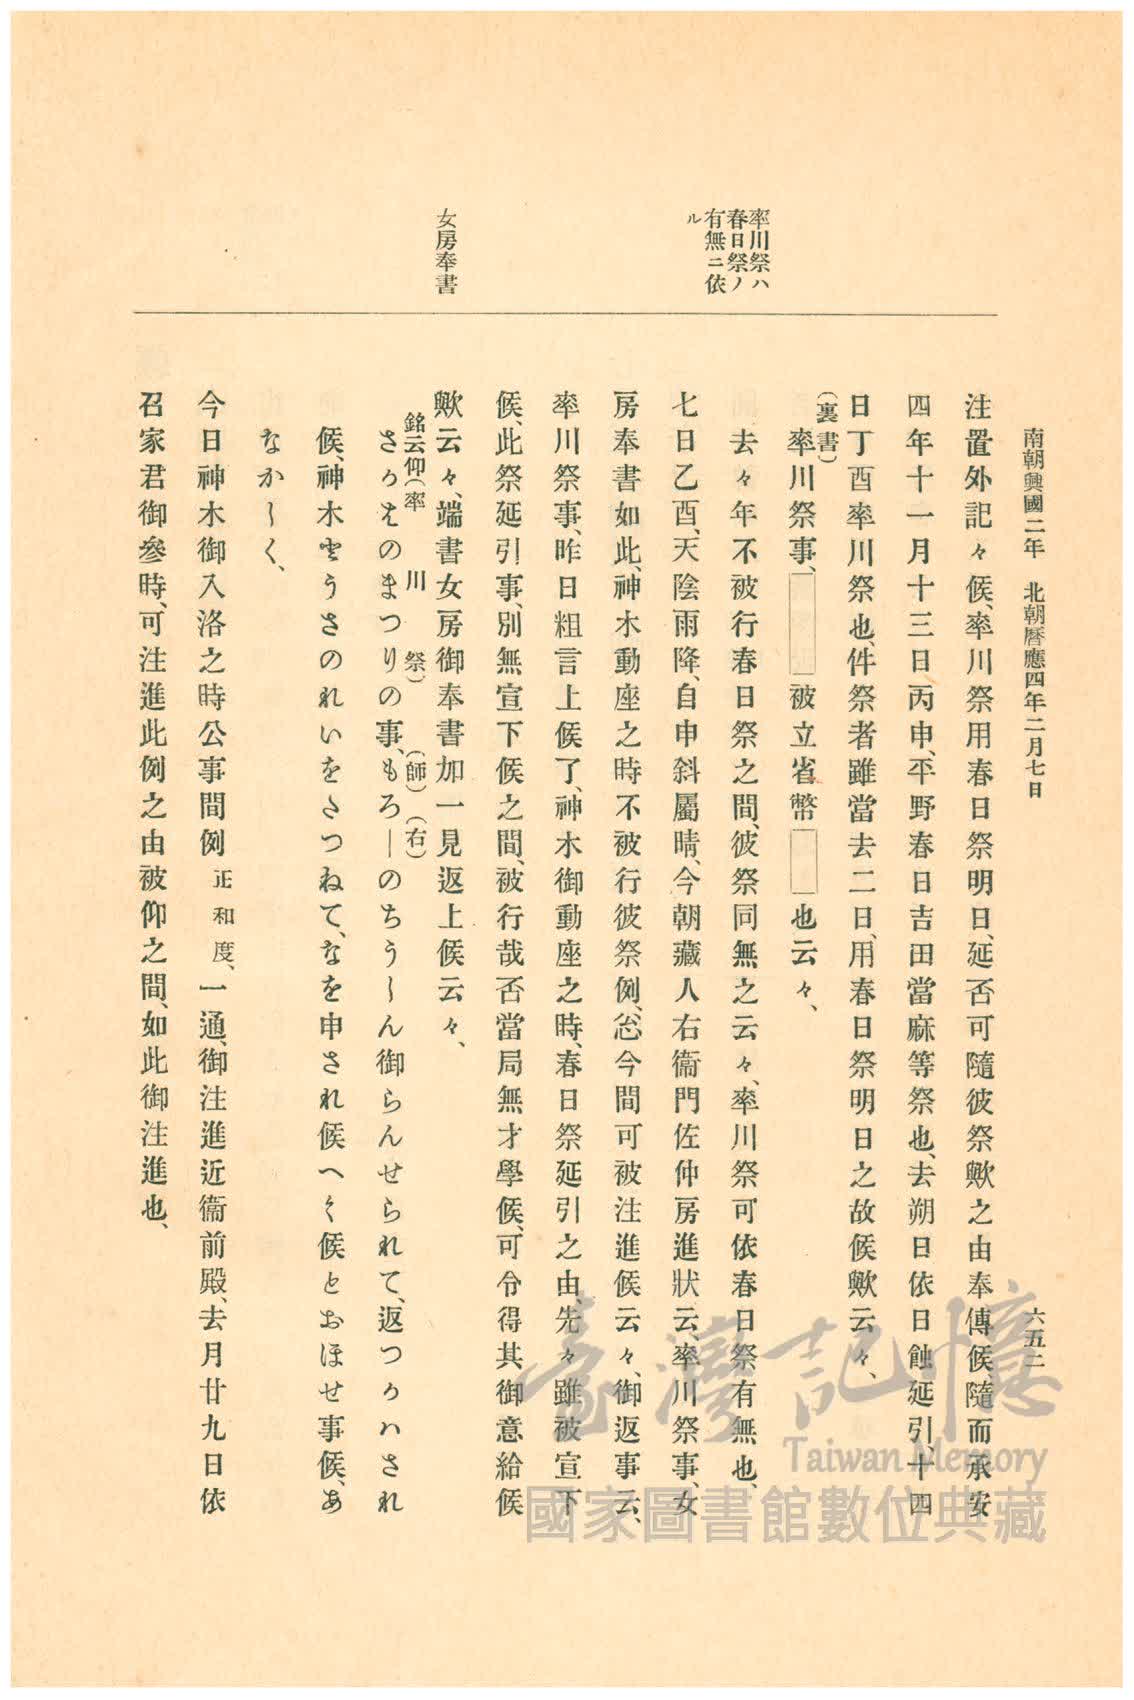 南朝興國二年　北朝曆應四年二月七日
六五二
率川祭ハ
春日祭ノ
有無ニ依
ル
女房奉書
注置外記々候、率川祭用春日祭明日、延否可隨彼祭歟之由奉傳候、隨而承安
四年十一月十三日、丙申、平野春日吉田當麻等祭也、去朔日依日蝕延引、十四
日丁酉率川祭也、件祭者雖當去二日、用春日祭明日之故候歟云々、
（裏書）
率川祭事、　被立省幣　也云々、
去々年不被行春日祭之間、彼祭同無之云々、率川祭可依春日祭有無也、
七日乙酉、天陰雨降、自申斜屬晴、今朝藏人右衞門佐仲房進狀云、率川祭事、女
房奉書如此、神木動座之時不被行彼祭例、忩今間可被注進候云々、御返事云、
率川祭事、昨日粗言上候了、神木御動座之時、春日祭延引之由、先々雖被宣下
候、此祭延引事、別無宣下候之間、被行哉否當局無才學候、可令得其御意給候
歟云々、端書女房御奉書加一見返上候云々、
銘云仰（率川祭）（師）（右）
さかはのまつりの事、もろ―のちうしん御らんせられて、返つかハされ
候、神木とうさのれいをたつねて、なを申され候へく候とおほせ事候、あ
なかしく、
今日神木御入洛之時公事間例正和度、一通、御注進近衞前殿、去月廿九日依
召家君御參時、可注進此例之由被仰之間、如此御注進也、
臺灣記憶
Taiwan Memory
國家圖書館數位典藏